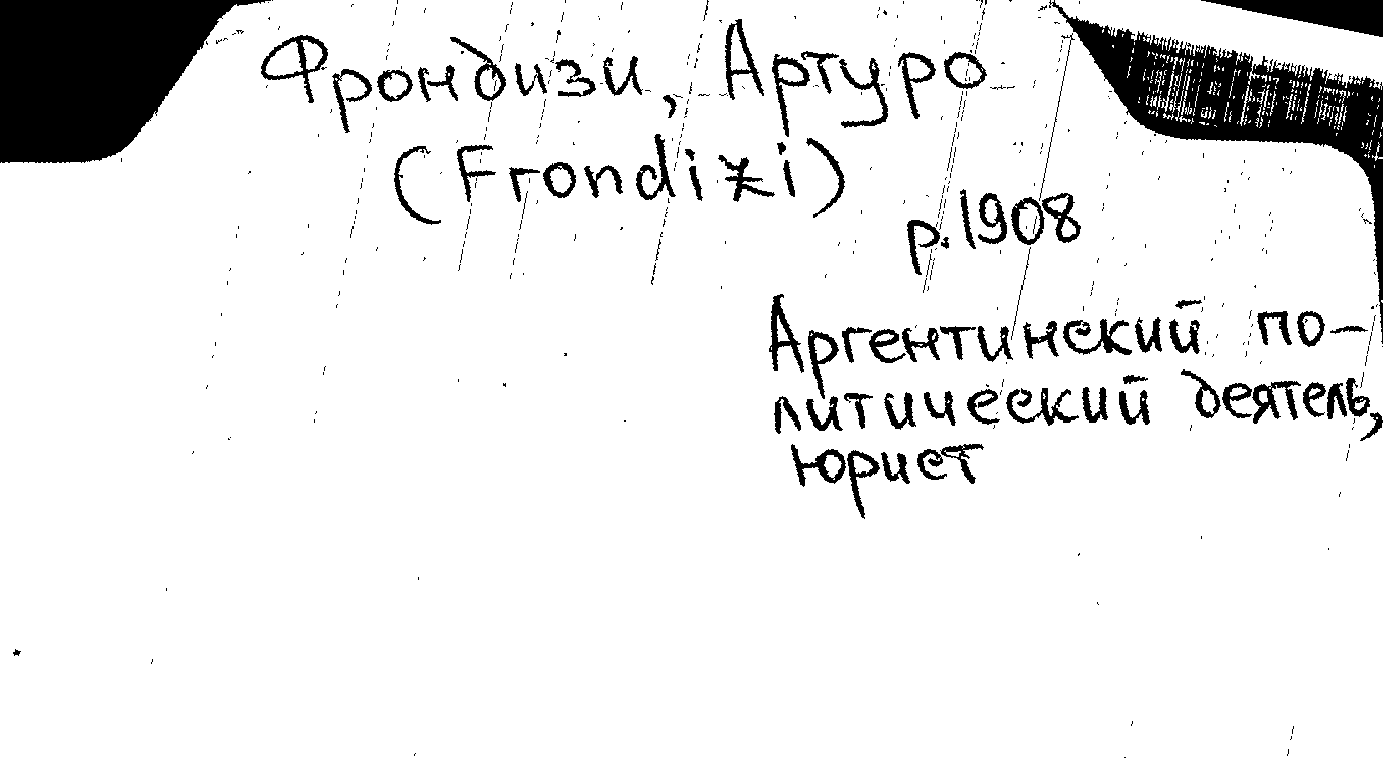 Фрондизи, Артуро
(Frondizi)
р. 1908
Аргентинский по-
литический деятель,
юрист